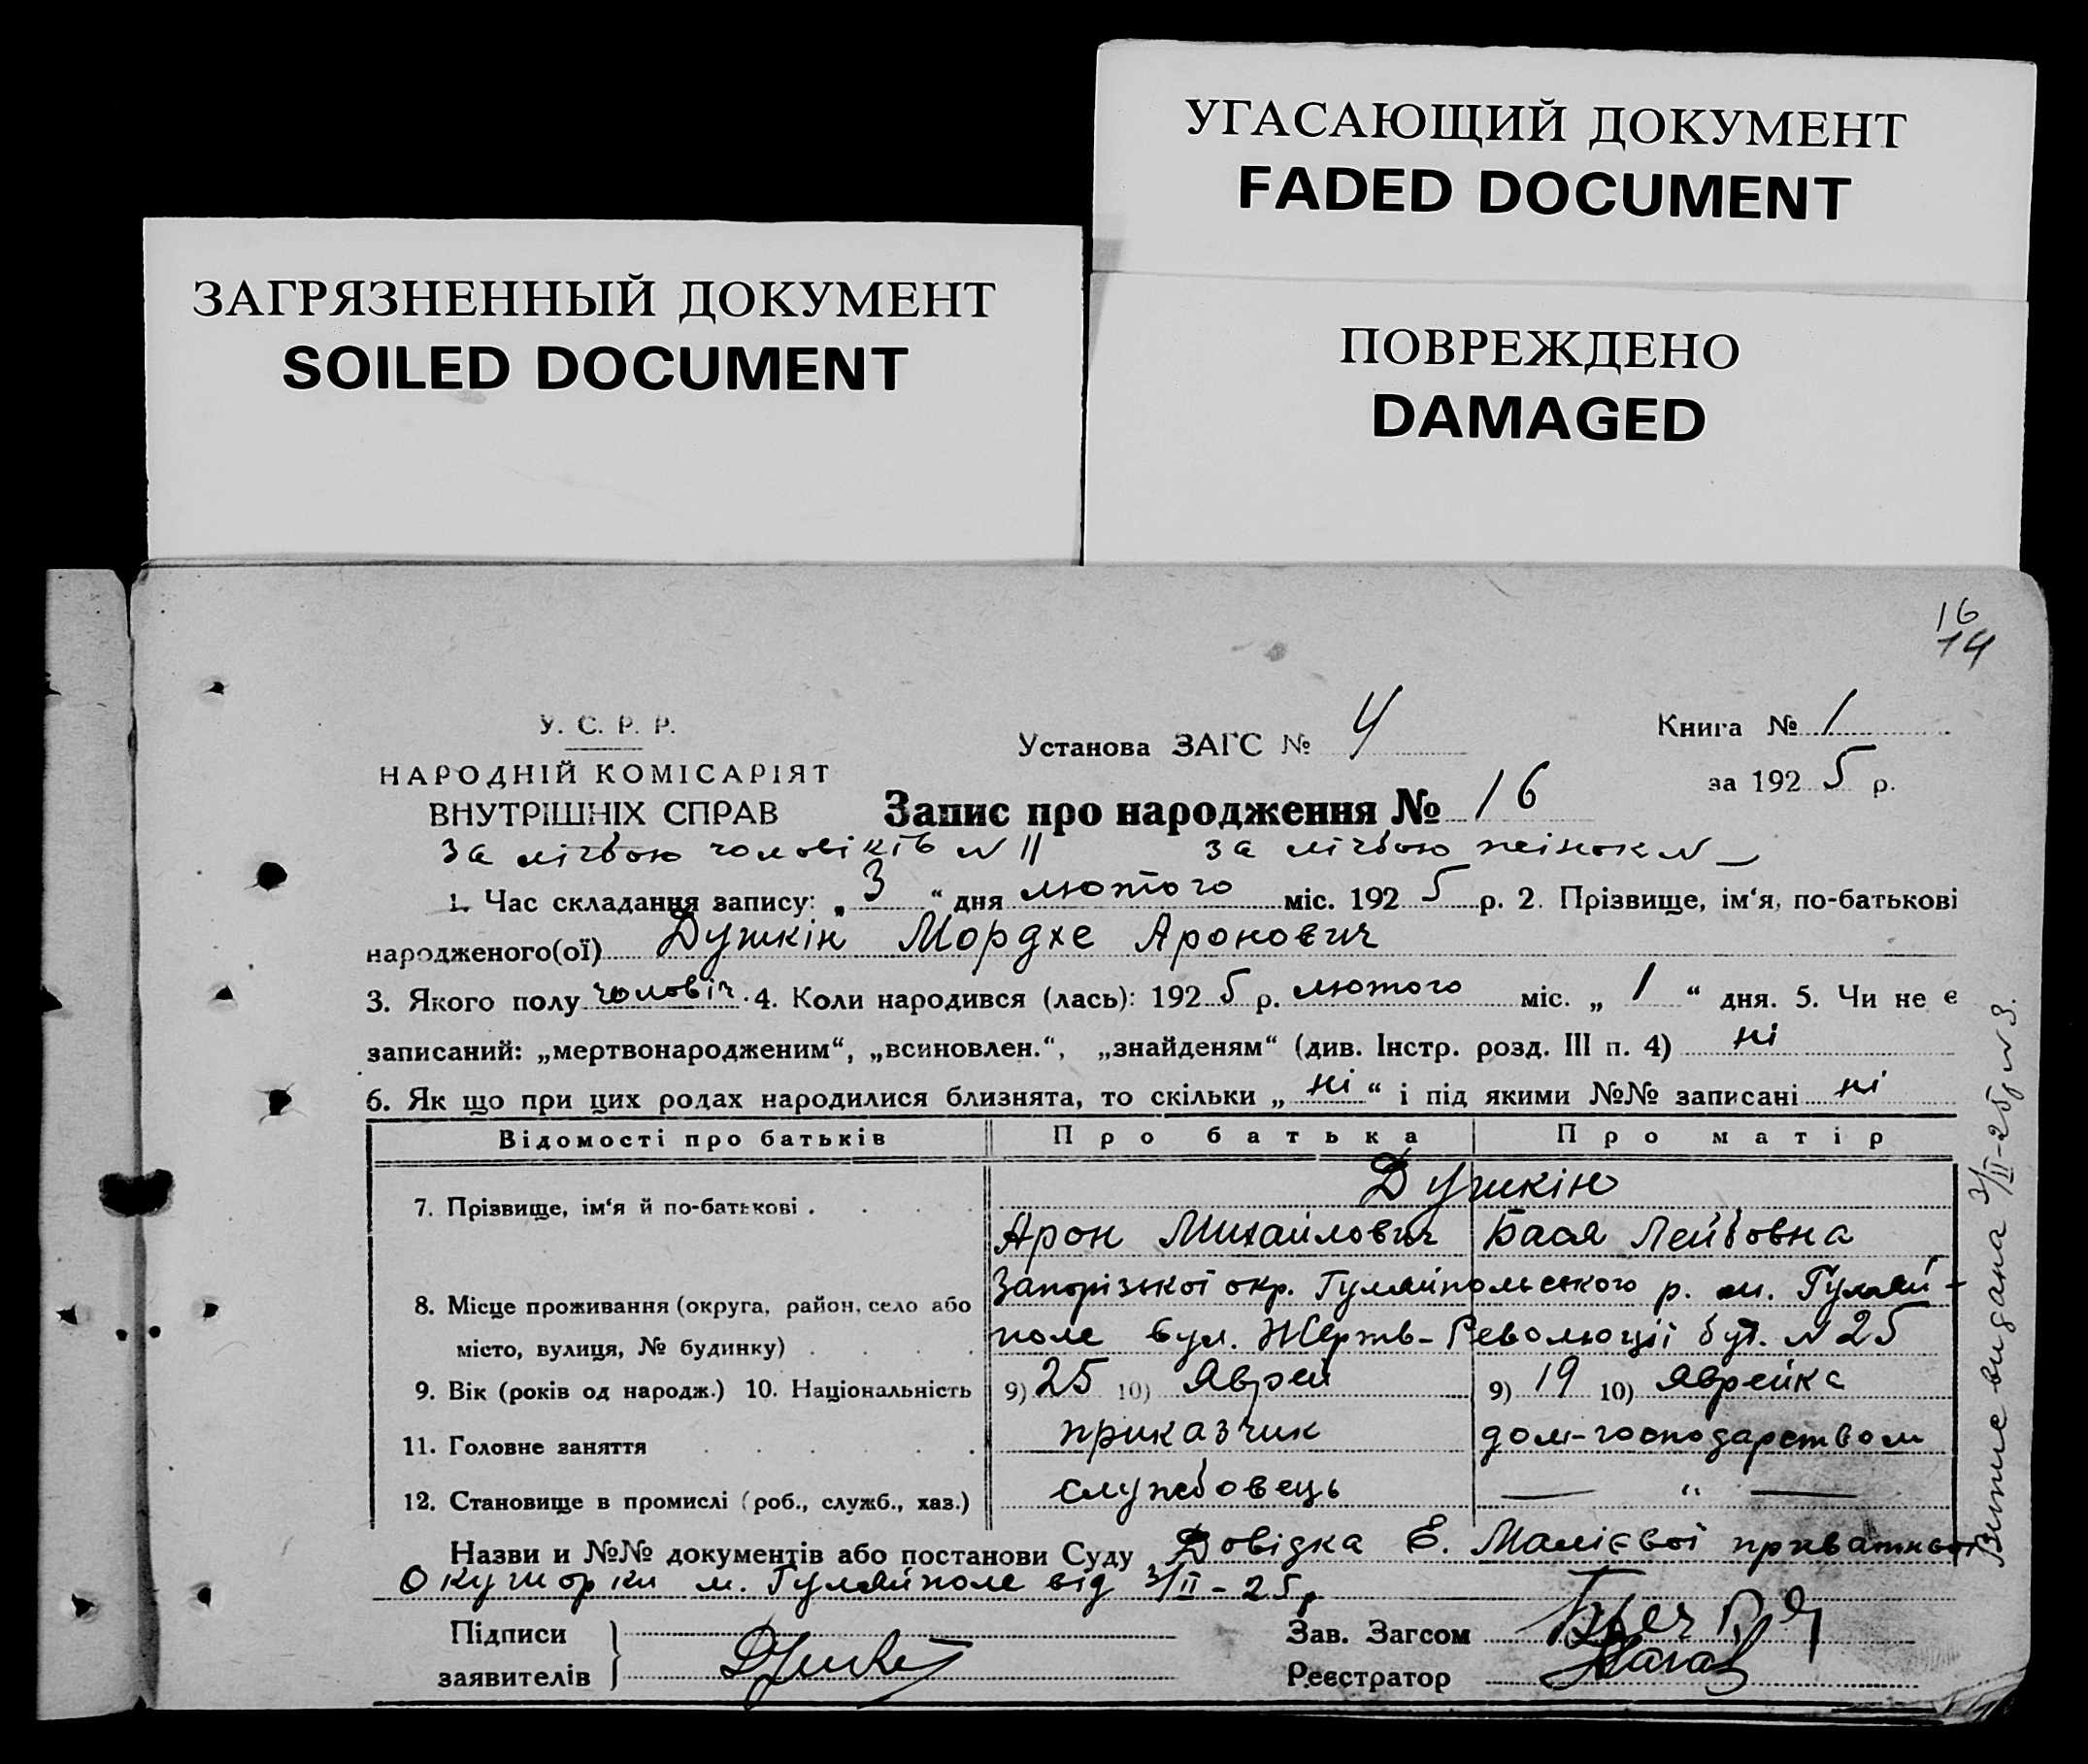 УГАСАЮЩИЙ ДОКУМЕНТ
FADED DOCUMENT
ЗАГРЯЗНЕННЫЙ ДОКУМЕНТ
SOILED DOCUMENT
ПОВРЕЖДЕНО
DAMAGED
16
14
У. С. Р. Р.
НАРОДНІЙ КОМІСАРІЯТ
ВНУТРІШНІХ СПРАВ
Установа ЗАГС № 4
Книга № 1
за 1925 р.
Запис про народження № 16
За лічбою чоловіків N 11 за лічбою жінок N —
1. Час складання запису: „3“ дня лютого міс. 1925 р. 2. Прізвище, ім‘я, по-батькові
народженого(ої) Душкін Мордхе Аронович
3. Якого полу чоловіч. 4. Коли народився (лась): 1925 р. лютого міс. „1“ дня. 5. Чи не є
записаний: „мертвонародженим“, „всиновлен.“, „знайденям“ (див. Інстр. розд. III п. 4) ні
6. Як що при цих родах народилися близнята, то скільки „ні“ і під якими №№ записані ні
Відомості про батьків Про батька Про матір
Душкін
7. Прізвище, ім‘я й по-батькові . Арон Михайлович Бася Лейбовна
8. Місце проживання (округа, район, село або Запорізької окр. Гуляйпольського р. м. Гуляй-
місто, вулиця, № будинку) поле вул. Жертв-Революції буд. N 25
9. Вік (років од народж.) 10. Національність 9) 25 10) Яврей 9) 19 10) Яврейка
11. Головне заняття приказчик дом-господарством
12. Становище в промислі (роб., служб., хаз.) службовець — " —
Назви и №№ документів або постанови Суду Довідка Е. Малієвої приватньої
Окушорки м. Гуляйполе від 3/II-25р
Підписи
заявителів
Зав. Загсом
Реєстратор
Витпс видана 3/II-25р N 3.